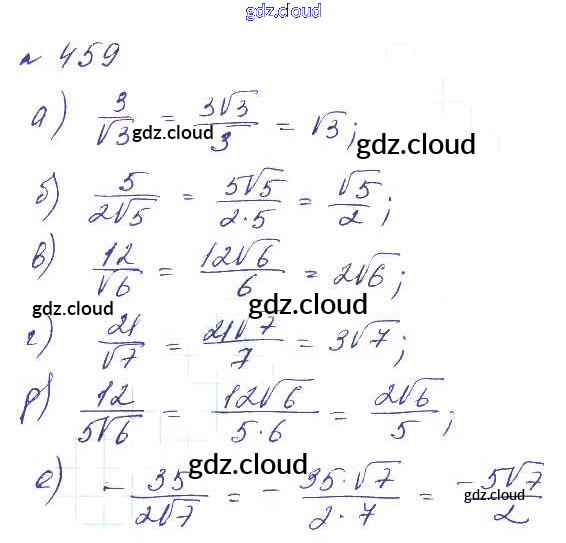 gdz.cloud
gdz.cloud
№ 459
а) 3/√3 = 3√3/3 = √3;
gdz.cloud
gdz.cloud
б) 5/2√5 = 5√5/2·5 = √5/2;
в) 12/√6 = 12√6/6 = 2√6;
gdz.cloud
gdz.cloud
г) 21/√7 = 21√7/7 = 3√7;
д) 12/5√6 = 12√6/5·6 = 2√6/5;
gdz.cloud
е) - 35/2√7 = - 35·√7/2·7 = -5√7/2
gdz.cloud
gdz.cloud